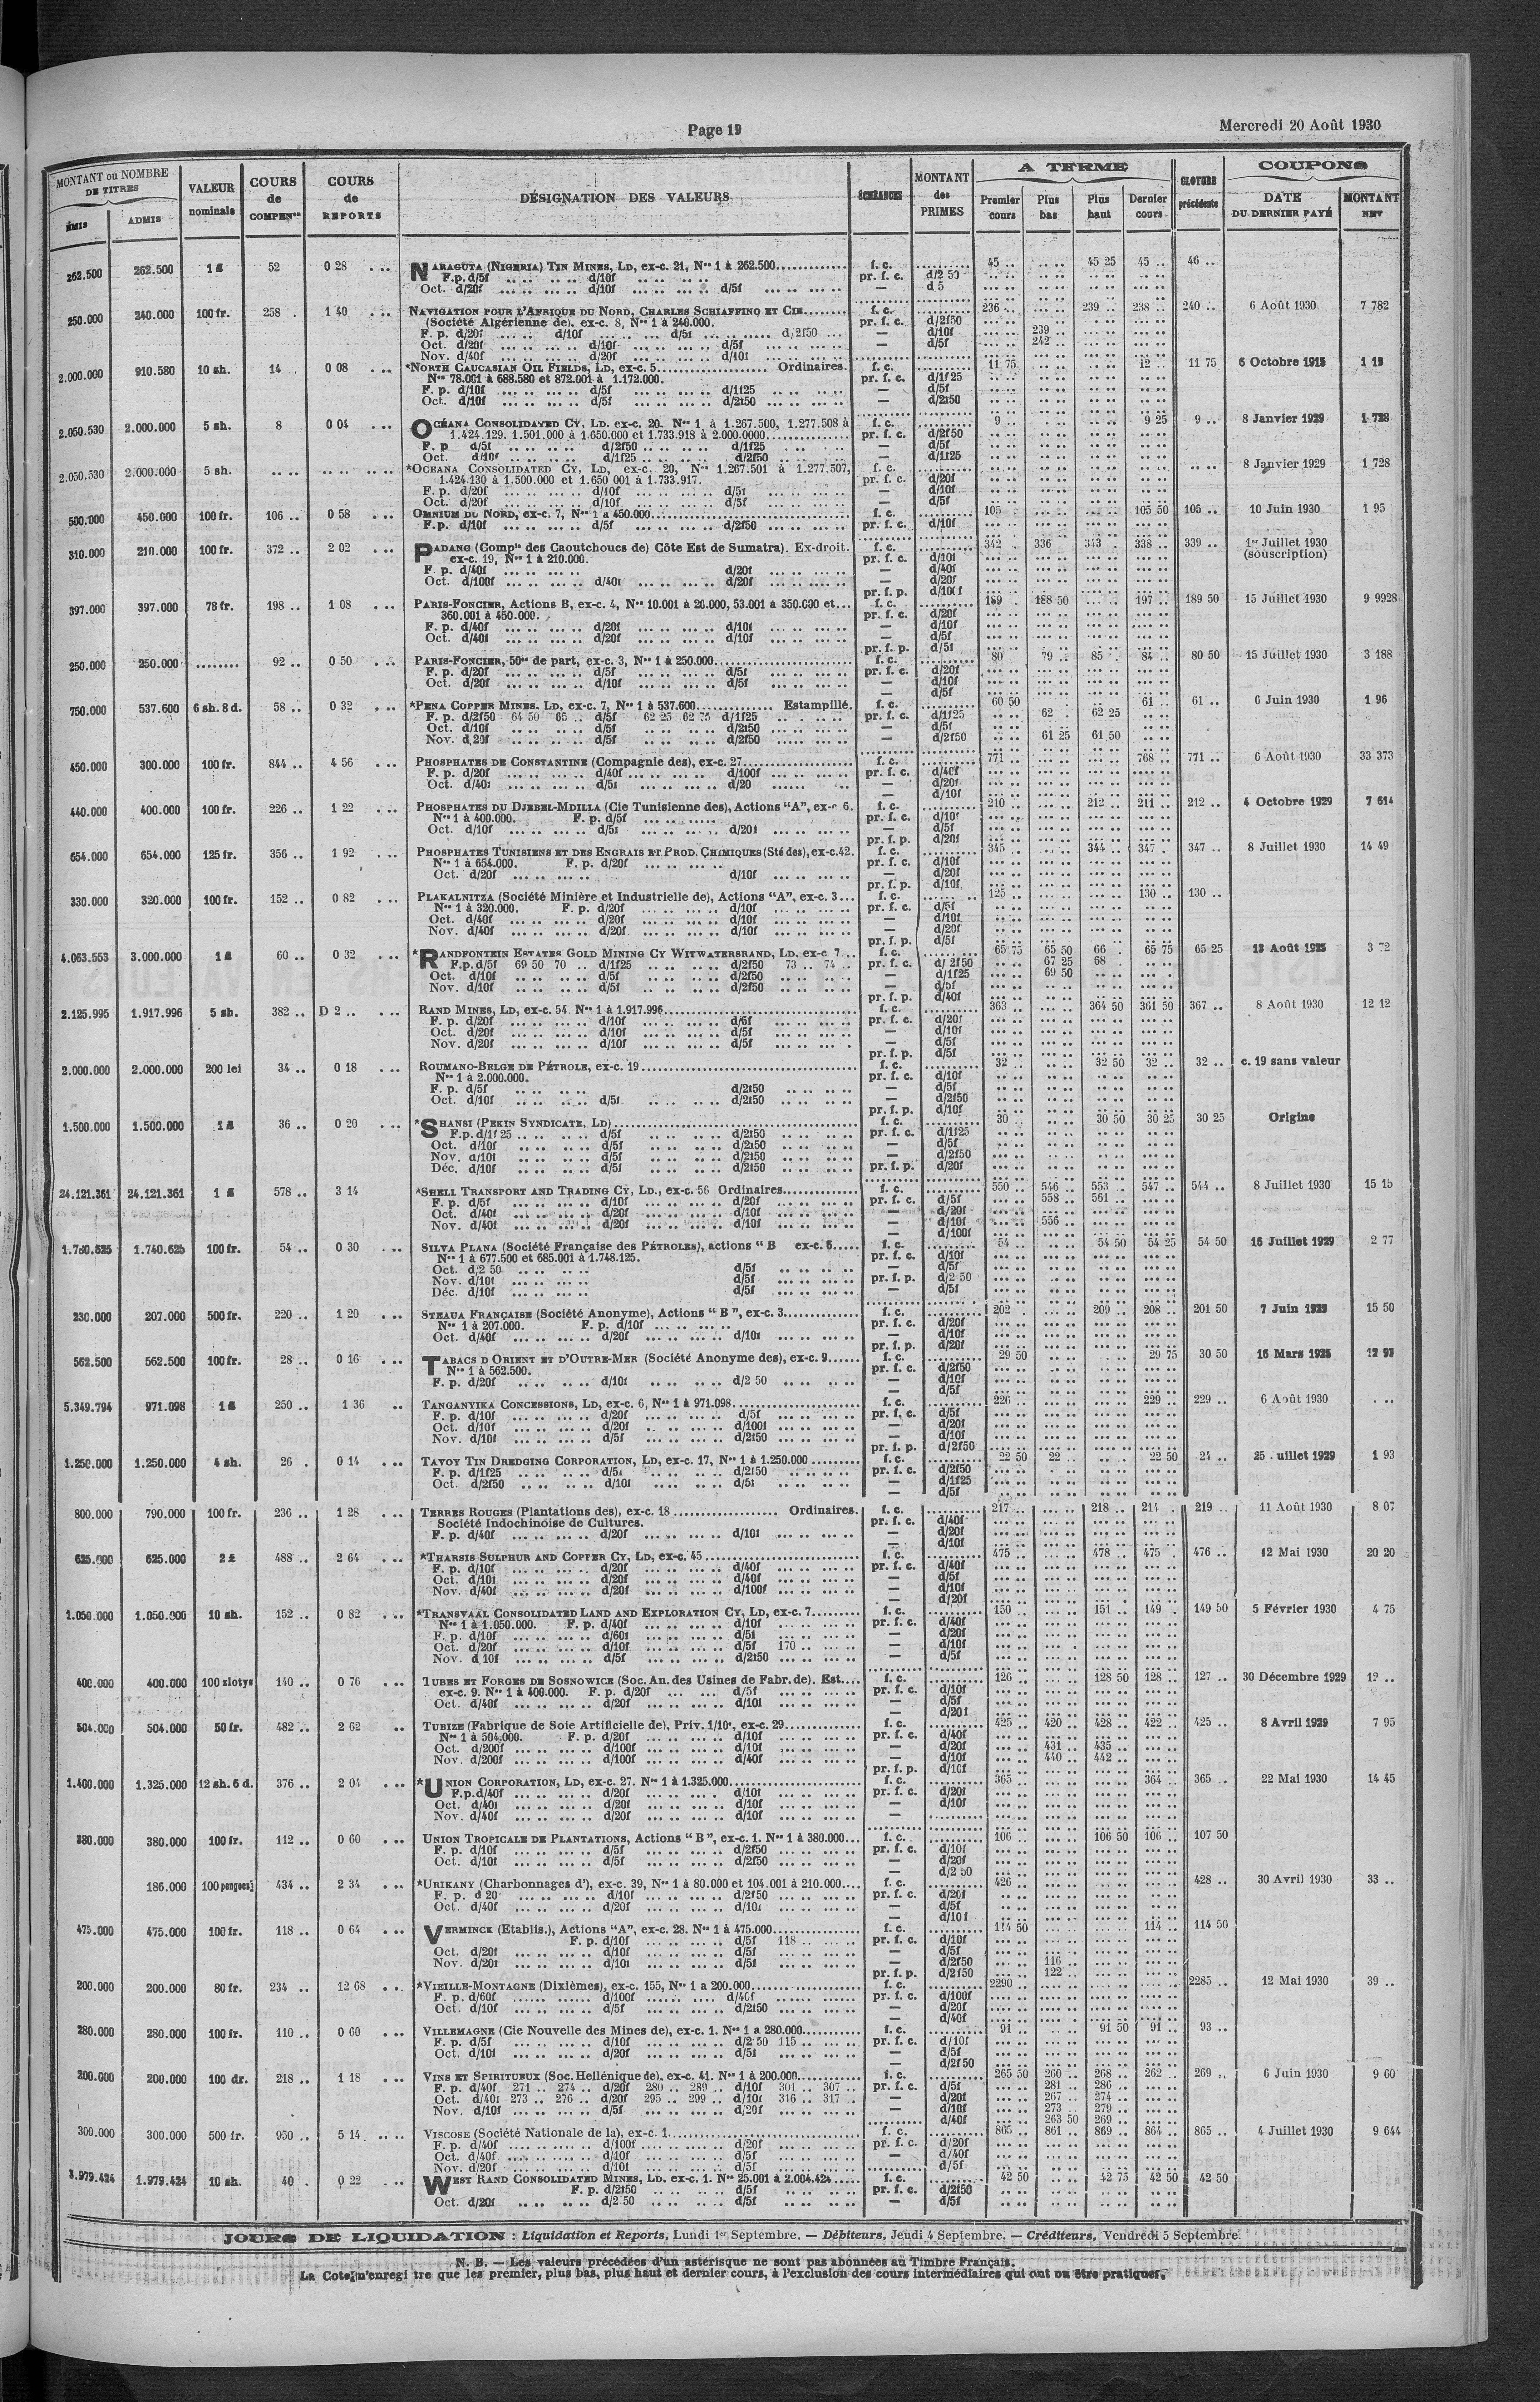 Page 19
Mercredi 20 Août 1930
MONTANT ou NOMBRE DE TITRES
ÉMIS ADMIS
VALEUR nominale
COURS de COMPENon
COURS de REPORTS
DÉSIGNATION DES VALEURS
ÉCHÉANCES
MONTANT des PRIMES
A TERME
Premier cours Plus bas Plus haut Dernier cours
CLOTURE précédente
COUPONS
DATE DU DERNIER PAYÉ MONTANT NET
262.500 262.500 1 £ 52 0 28 NARAGUTA (NIGERIA) TIN MINES, LD, ex-c. 21, Nos 1 à 262.500 f. c. 45 .. 45 25 45 .. 46 ..
F.p. d/5f d/10f pr. f. c. d/2 50
Oct. d/20f d/10f d/5f — d 5
250.000 240.000 100 fr. 258 . 1 40 NAVIGATION POUR L'AFRIQUE DU NORD, CHARLES SCHIAFFINO ET CIE f. c. 236 .. 239 .. 238 .. 240 .. 6 Août 1930 7 782
(Société Algérienne de), ex-c. 8, Nos 1 à 240.000. pr. f. c. d/2f50
F. p. d/20f d/10f d/5f d/2f50 — d/10f 239 ..
Oct. d/20f d/10f d/5f — d/5f 242 ..
Nov. d/40f d/20f d/10f
2.000.000 910.580 10 sh. 14 . 0 08 *NORTH CAUCASIAN OIL FIELDS, LD, ex-c. 5 Ordinaires. f. c. 11 75 12 .. 11 75 6 Octobre 1915
Nos 78.001 à 688.580 et 872.001 à 1.172.000. pr. f. c. d/1f25
F. p. d/10f d/5f d/1f25 — d/5f
Oct. d/10f d/5f d/2f50 — d/2f50
2.050.530 2.000.000 5 sh. 8 0 04 OCÉANA CONSOLIDATED CY, LD. ex-c. 20. Nos 1 à 1.267.500, 1.277.508 à f. c. 9 .. 9 25 9 .. 8 Janvier 1929 1 728
1.424.129. 1.501.000 à 1.650.000 et 1.733.918 à 2.000.0000 pr. f. c. d/2f50
F. p d/5f d/2f50 d/1f25 — d/5f
Oct. d/10f d/1f25 d/2f50 — d/1f25
2.050.530 2.000.000 5 sh. *OCEANA CONSOLIDATED CY, LD, ex-c. 20, Nos 1.267.501 à 1.277.507, f. c. 8 Janvier 1929 1 728
1.424.130 à 1.500.000 et 1.650 001 à 1.733.917. pr. f. c. d/20f
F. p. d/20f d/10f d/5f — d/10f
Oct. d/20f d/10f d/5f — d/5f
500.000 450.000 100 fr. 106 .. 0 58 OMNIUM DU NORD, ex-c. 7, Nos 1 à 450.000 f. c. 105 105 50 105 .. 10 Juin 1930 1 95
F.p. d/10f d/5f d/2f50 pr. f. c. d/10f
310.000 210.000 100 fr. 372 .. 2 02 PADANG (Compie des Caoutchoucs de) Côte Est de Sumatra). Ex-droit. f. c. 342 . 336 343 . 338 .. 339 .. 1er Juillet 1930
ex-c. 19, Nos 1 à 210.000. pr. f. c. d/10f (souscription)
F. p. d/40f d/20f — d/40f
Oct. d/100f d/40f d/20f — d/20f
pr. f. p. d/10f
397.000 397.000 78 fr. 198 .. 1 08 PARIS-FONCIER, Actions B, ex-c. 4, Nos 10.001 à 26.000, 53.001 à 350.000 et f. c. 189 . 188 50 197 .. 189 50 15 Juillet 1930 9 9928
360.001 à 450.000. pr. f. c. d/20f
F. p. d/40f d/20f d/10f — d/10f
Oct. d/40f d/20f d/10f — d/5f
pr. f. p. d/5f
250.000 250.000 92 .. 0 50 PARIS-FONCIER, 50es de part, ex-c. 3, Nos 1 à 250.000 f. c. 80 79 .. 85 . 84 .. 80 50 15 Juillet 1930 3 188
F. p. d/20f d/5f d/5f pr. f. c. d/20f
Oct. d/20f d/10f d/5f — d/10f
— d/5f
750.000 537.600 6 sh. 8 d. 58 .. 0 32 *PENA COPPER MINES. LD, ex-c. 7, Nos 1 à 537.600 Estampillé. f. c. 60 50 61 .. 61 .. 6 Juin 1930 1 96
F. p. d/2f50 64 50 65 .. d/5f 62 25 62 75 d/1f25 pr. f. c. d/1f25 62 . 62 25
Oct. d/10f d/5f d/2f50 — d/5f
Nov. d.20f d/5f d/2f50 — d/2f50 61 25 61 50
450.000 300.000 100 fr. 844 .. 4 56 PHOSPHATES DE CONSTANTINE (Compagnie des), ex-c. 27 f. c. 771 .. 768 .. 771 .. 6 Août 1930 33 373
F. p. d/20f d/40f d/100f pr. f. c. d/40f
Oct. d/40f d/5f d/20 — d/20f
— d/10f
440.000 400.000 100 fr. 226 .. 1 22 PHOSPHATES DU DJEBEL-MDILLA (Cie Tunisienne des), Actions “A”, ex-c 6. f. c. 210 .. 212 .. 211 .. 212 .. 4 Octobre 1929 7 614
Nos 1 à 400.000. F. p. d/5f pr. f. c. d/10f
Oct. d/10f d/5f d/20f — d/5f
pr. f. p. d/20f
654.000 654.000 125 fr. 356 .. 1 92 PHOSPHATES TUNISIENS ET DES ENGRAIS ET PROD. CHIMIQUES (Sté des), ex-c. 42. f. c. 345 344 .. 347 .. 347 .. 8 Juillet 1930 14 49
Nos 1 à 654.000. F. p. d/20f pr. f. c. d/10f
Oct. d/20f d/10f — d/20f
pr. f. p. d/10f
330.000 320.000 100 fr. 152 .. 0 82 PLAKALNITZA (Société Minière et Industrielle de), Actions “A”, ex-c. 3 f. c. 125 .. 130 .. 130 ..
Nos 1 à 320.000. F. p. d/20f d/10f pr. f. c. d/5f
Oct. d/40f d/20f d/10f — d/10f
Nov. d/40f d/20f d/10f — d/20f
pr. f. p. d/5f
4.063.553 3.000.000 1 £ 60 .. 0 32 *RANDFONTEIN ESTATES GOLD MINING CY WITWATERSRAND, LD. ex-c 7 f. c. 65 75 65 50 66 . 65 75 65 25 13 Août 1925 3 72
F.p. d/5f 69 50 70 .. d/1f25 d/2f50 73 .. 74 .. pr. f. c. d/ 2f50 67 25 68
Oct. d/10f d/5f d/2f50 — d/1f25 69 50
Nov. d/10f d/5f d/2f50 — d/5f
pr. f. p. d/40f
2.125.995 1.917.996 5 sh. 382 .. D 2 .. RAND MINES, LD, ex-c. 54 Nos 1 à 1.917.996 f. c. 363 364 50 361 50 367 .. 8 Août 1930 12 12
F. p. d/20f d/10f d/5f pr. f. c. d/20f
Oct. d/20f d/10f d/5f — d/10f
Nov. d/20f d/10f d/5f — d/5f
pr. f. p. d/5f
2.000.000 2.000.000 200 lei 34 .. 0 18 ROUMANO-BELGE DE PÉTROLE, ex-c. 19 f. c. 32 32 50 32 .. 32 .. c. 19 sans valeur
Nos 1 à 2.000.000. pr. f. c. d/10f
F. p. d/5f d/2f50 — d/5f
Oct. d/10f d/5f d/2f50 — d/2f50
pr. f. p. d/10f
1.500.000 1.500.000 1 £ 36 .. 0 20 *SHANSI (PEKIN SYNDICATE, LD) f. c. 30 30 50 30 25 30 25 Origine
F.p. d/1f25 d/5f d/2f50 pr. f. c. d/1f25
Oct. d/10f d/5f d/2f50 — d/5f
Nov. d/10f d/5f d/2f50 — d/2f50
Déc. d/10f d/5f d/2f50 pr. f. p. d/20f
24.121.361 24.121.361 1 £ 578 .. 3 14 *SHELL TRANSPORT AND TRADING CY, LD., ex-c. 56 Ordinaires f. c. 550 .. 546 .. 553 .. 547 .. 544 .. 8 Juillet 1930 15 15
F. p. d/5f d/10f d/20f pr. f. c. d/5f 558 .. 561 ..
Oct. d/40f d/20f d/10f — d/20f
Nov. d/40f d/20f d/10f — d/10f 556 ..
— d/100f
1.740.625 100 fr. 54 .. 0 30 SILVA PLANA (Société Française des PÉTROLES), actions “ B ex-c. 6 f. c. 54 .. 54 50 54 25 54 50 16 Juillet 1929 2 77
Nos 1 à 677.500 et 685.001 à 1.748.125. pr. f. c. d/10f
Oct. d/2 50 d/5f — d/5f
Nov. d/10f d/5f pr. f. p. d/2 50
Déc. d/10f d/5f — d/5f
230.000 207.000 500 fr. 220 .. 1 20 STEAUA FRANÇAISE (Société Anonyme), Actions “ B ”, ex-c. 3 f. c. 202 209 .. 208 .. 201 50 7 Juin 1929 15 50
Nos 1 à 207.000. F. p. d/10f pr. f. c. d/20f
Oct. d/40f d/20f d/10f — d/10f
pr. f. p. d/20f
562.500 562.500 100 fr. 28 .. 0 16 TABACS D ORIENT ET D'OUTRE-MER (Société Anonyme des), ex-c. 9 f. c. 29 50 29 75 30 50 16 Mars 1925 12 93
Nos 1 à 562.500. pr. f. c. d/2f50
F. p. d/20f d/10f d/2 50 — d/10f
— d/5f
5.349.794 971.098 1 £ 250 .. 1 36 TANGANYIKA CONCESSIONS, LD, ex-c. 6, Nos 1 à 971.098 f. c. 226 .. 229 .. 229 .. 6 Août 1930
F. p. d/10f d/20f d/5f pr. f. c. d/5f
Oct. d/10f d/20f d/100f — d/20f
Nov. d/10f d/5f d/2f50 — d/10f
pr. f. p. d/2f50
1.250.000 1.250.000 4 sh. 26 . 0 14 TAVOY TIN DREDGING CORPORATION, LD, ex-c. 17, Nos 1 à 1.250.000 f. c. 22 50 22 .. 22 50 24 .. 25 . uillet 1929 1 93
F. p. d/1f25 d/5f d/2f50 pr. f. c. d/2f50
Oct. d/2f50 d/10f d/5f — d/1f25
— d/5f
800.000 790.000 100 fr. 236 .. 1 28 TERRES ROUGES (Plantations des), ex-c. 18 Ordinaires. f. c. 217 .. 218 .. 214 . 219 .. 11 Août 1930 8 07
Société Indochinoise de Cultures. pr. f. c. d/40f
F. p. d/40f d/20f d/10f — d/20f
— d/10f
625.000 625.000 2 £ 488 .. 2 64 *THARSIS SULPHUR AND COPPER CY, LD, ex-c. 45 f. c. 475 .. 478 .. 475 . 476 .. 12 Mai 1930 20 20
F. p. d/10f d/20f d/40f pr. f. c. d/40f
Oct. d/10f d/20f d/40f — d/5f
Nov. d/40f d/20f d/100f — d/10f
— d/20f
1.050.000 1.050.000 10 sh. 152 .. 0 82 *TRANSVAAL CONSOLIDATED LAND AND EXPLORATION CY, LD, ex-c. 7 f. c. 150 .. 151 .. 149 .. 149 50 5 Février 1930 4 75
Nos 1 à 1.050.000. F. p. d/40f d/10f pr. f. c. d/40f
F. p. d/10f d/60f d/5f — d/20f
Oct. d/20f d/10f d/5f 170 .. — d/10f
Nov. d 10f d/5f d/2f50 — d/5f
400.000 400.000 100 zlotys 140 .. 0 76 TUBES ET FORGES DE SOSNOWICE (Soc. An. des Usines de Fabr. de). Est. f. c. 126 .. 128 50 128 .. 127 .. 30 Décembre 1929
ex-c. 9. Nos 1 à 400.000. F. p. d/20f d/5f pr. f. c. d/10f
Oct. d/40f d/20f d/10f — d/5f
— d/20f
504.000 504.000 50 fr. 482 .. 2 62 TUBIZE (Fabrique de Soie Artificielle de), Priv. 1/10e, ex-c. 29 f. c. 425 .. 420 .. 428 .. 422 .. 425 .. 8 Avril 1929 7 95
Nos 1 à 504.000. F. p. d/20f d/10f pr. f. c. d/40f
Oct. d/200f d/100f d/10f — d/20f 431 .. 435 ..
Nov. d/200f d/100f d/40f — d/10f 440 .. 442 ..
pr. f. p. d/10f
1.400.000 1.325.000 12 sh. 6 d. 376 .. 2 04 *UNION CORPORATION, LD, ex-c. 27. Nos 1 à 1.325.000 f. c. 365 364 .. 365 .. 22 Mai 1930 14 45
F.p. d/40f d/20f d/10f pr. f. c. d/20f
Oct. d/40f d/20f d/10f — d/10f
Nov. d/40f d/20f d/10f —
380.000 380.000 100 fr. 112 .. 0 60 UNION TROPICALE DE PLANTATIONS, Actions “ B ”, ex-c. 1. Nos 1 à 380.000 f. c. 106 .. 106 50 106 .. 107 50
F. p. d/10f d/5f d/2f50 pr. f. c. d/10f
Oct. d/10f d/5f d/2f50 — d/20f
— d/2 50
186.000 100 pengoes 434 .. 2 34 *URIKANY (Charbonnages d'), ex-c. 39, Nos 1 à 80.000 et 104.001 à 210.000 f. c. 426 .. 428 .. 30 Avril 1930 33 ..
F. p. d 20 d/10f d/2f50 pr. f. c. d/20f
Oct. d/40f d/20f d/10f — d/5f
— d/10f
475.000 475.000 100 fr. 118 .. 0 64 VERMINCK (Etablis.), Actions “A”, ex-c. 28. Nos 1 à 475.000 f. c. 114 50 114 .. 114 50
F. p. d/10f d/5f 118 .. pr. f. c. d/10f
Oct. d/20f d/10f d/5f — d/5f
Nov. d/20f d/10f d/5f — d/2f50 116 ..
pr. f. p. d/2f50 122 ..
200.000 200.000 80 fr. 234 .. 12 68 *VIEILLE-MONTAGNE (Dixièmes), ex-c. 155, Nos 1 a 200.000 f. c. 2290 .. 2285 .. 12 Mai 1930 39 ..
F. p. d/60f d/100f d/40f pr. f. c. d/100f
Oct. d/10f d/5f d/2f50 — d/20f
— d/40f
280.000 280.000 100 fr. 110 .. 0 60 VILLEMAGNE (Cie Nouvelle des Mines de), ex-c. 1. Nos 1 a 280.000 f. c. 91 .. 91 50 91 .. 93 ..
F. p. d/5f d/10f d/2 50 115 .. pr. f. c. d/10f
Oct. d/10f d/20f d/5f — d/5f
— d/2f50
200.000 200.000 100 dr. 218 .. 1 18 VINS ET SPIRITUEUX (Soc. Hellénique de), ex-c. 41. Nos 1 à 200.000 f. c. 265 50 260 .. 268 .. 262 .. 269 .. 6 Juin 1930 9 60
F. p. d/40f 271 .. 274 .. d/20f 280 .. 289 .. d/10f 301 .. 307 .. pr. f. c. d/5f 281 .. 286 ..
Oct. d/40f 273 .. 276 .. d/20f 295 .. 299 .. d/10f 316 .. 317 . — d/20f 267 .. 274 ..
Nov. d/10f d/5f d/20f — d/10f 273 .. 279 ..
d/40f 263 50 269 ..
300.000 300.000 500 fr. 950 .. 5 14 VISCOSE (Société Nationale de la), ex-c. 1 f. c. 865 .. 861 .. 869 .. 864 .. 865 .. 4 Juillet 1930 9 644
F. p. d/40f d/100f d/20f pr. f. c. d/20f
Oct. d/40f d/10f d/5f — d/40f
Nov. d/20f d/10f d/5f d/5f
1.979.424 10 sh. 40 . 0 22 WEST RAND CONSOLIDATED MINES, LD. ex-c. 1. Nos 25.001 à 2.004.424 f. c. 42 50 42 75 42 50 42 50
F. p. d/2f50 d/5f pr. f. c. d/2f50
Oct. d/20f d/2 50 d/5f — d/5f
JOURS DE LIQUIDATION : Liquidation et Reports, Lundi 1er Septembre. — Débiteurs, Jeudi 4 Septembre. — Créditeurs, Vendredi 5 Septembre.
N. B. — Les valeurs précédées d'un astérisque ne sont pas abonnées au Timbre Français.
La Cote n'enregi tre que les premier, plus bas, plus haut et dernier cours, à l'exclusion des cours intermédiaires qui ont pu être pratiqués.